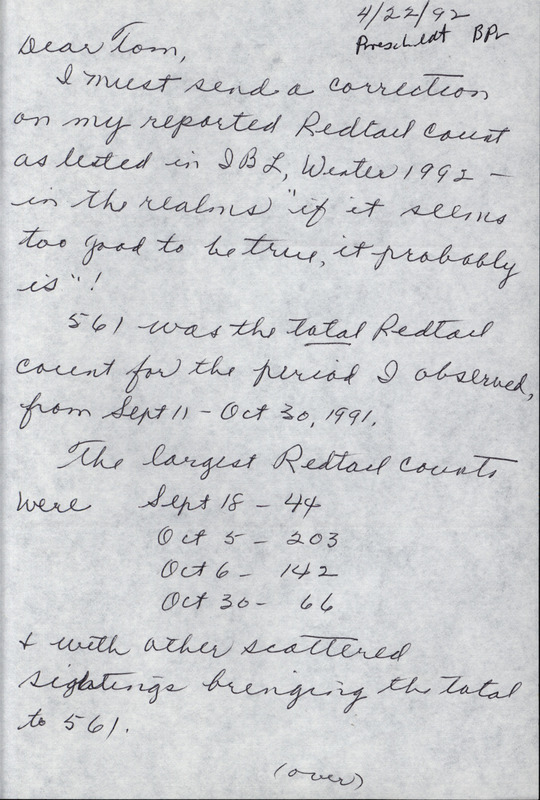 4/22/92
BPL
Dear Tom,
I must send a correction
on my reported Redtail count
as listed in IBL, Winter 1992 -
in the realms "if it seems
too good to be true, it probably
is"!
561 was the total Redtail
count for the period I observed,
from Sept 11 - Oct 30, 1991.
The largest Redtail counts
were Sept 18 - 44
Oct 5 - 203
Oct 6 - 142
Oct 30 - 66
+ with other scattered
sightings bringing the total
to 561.
(over)